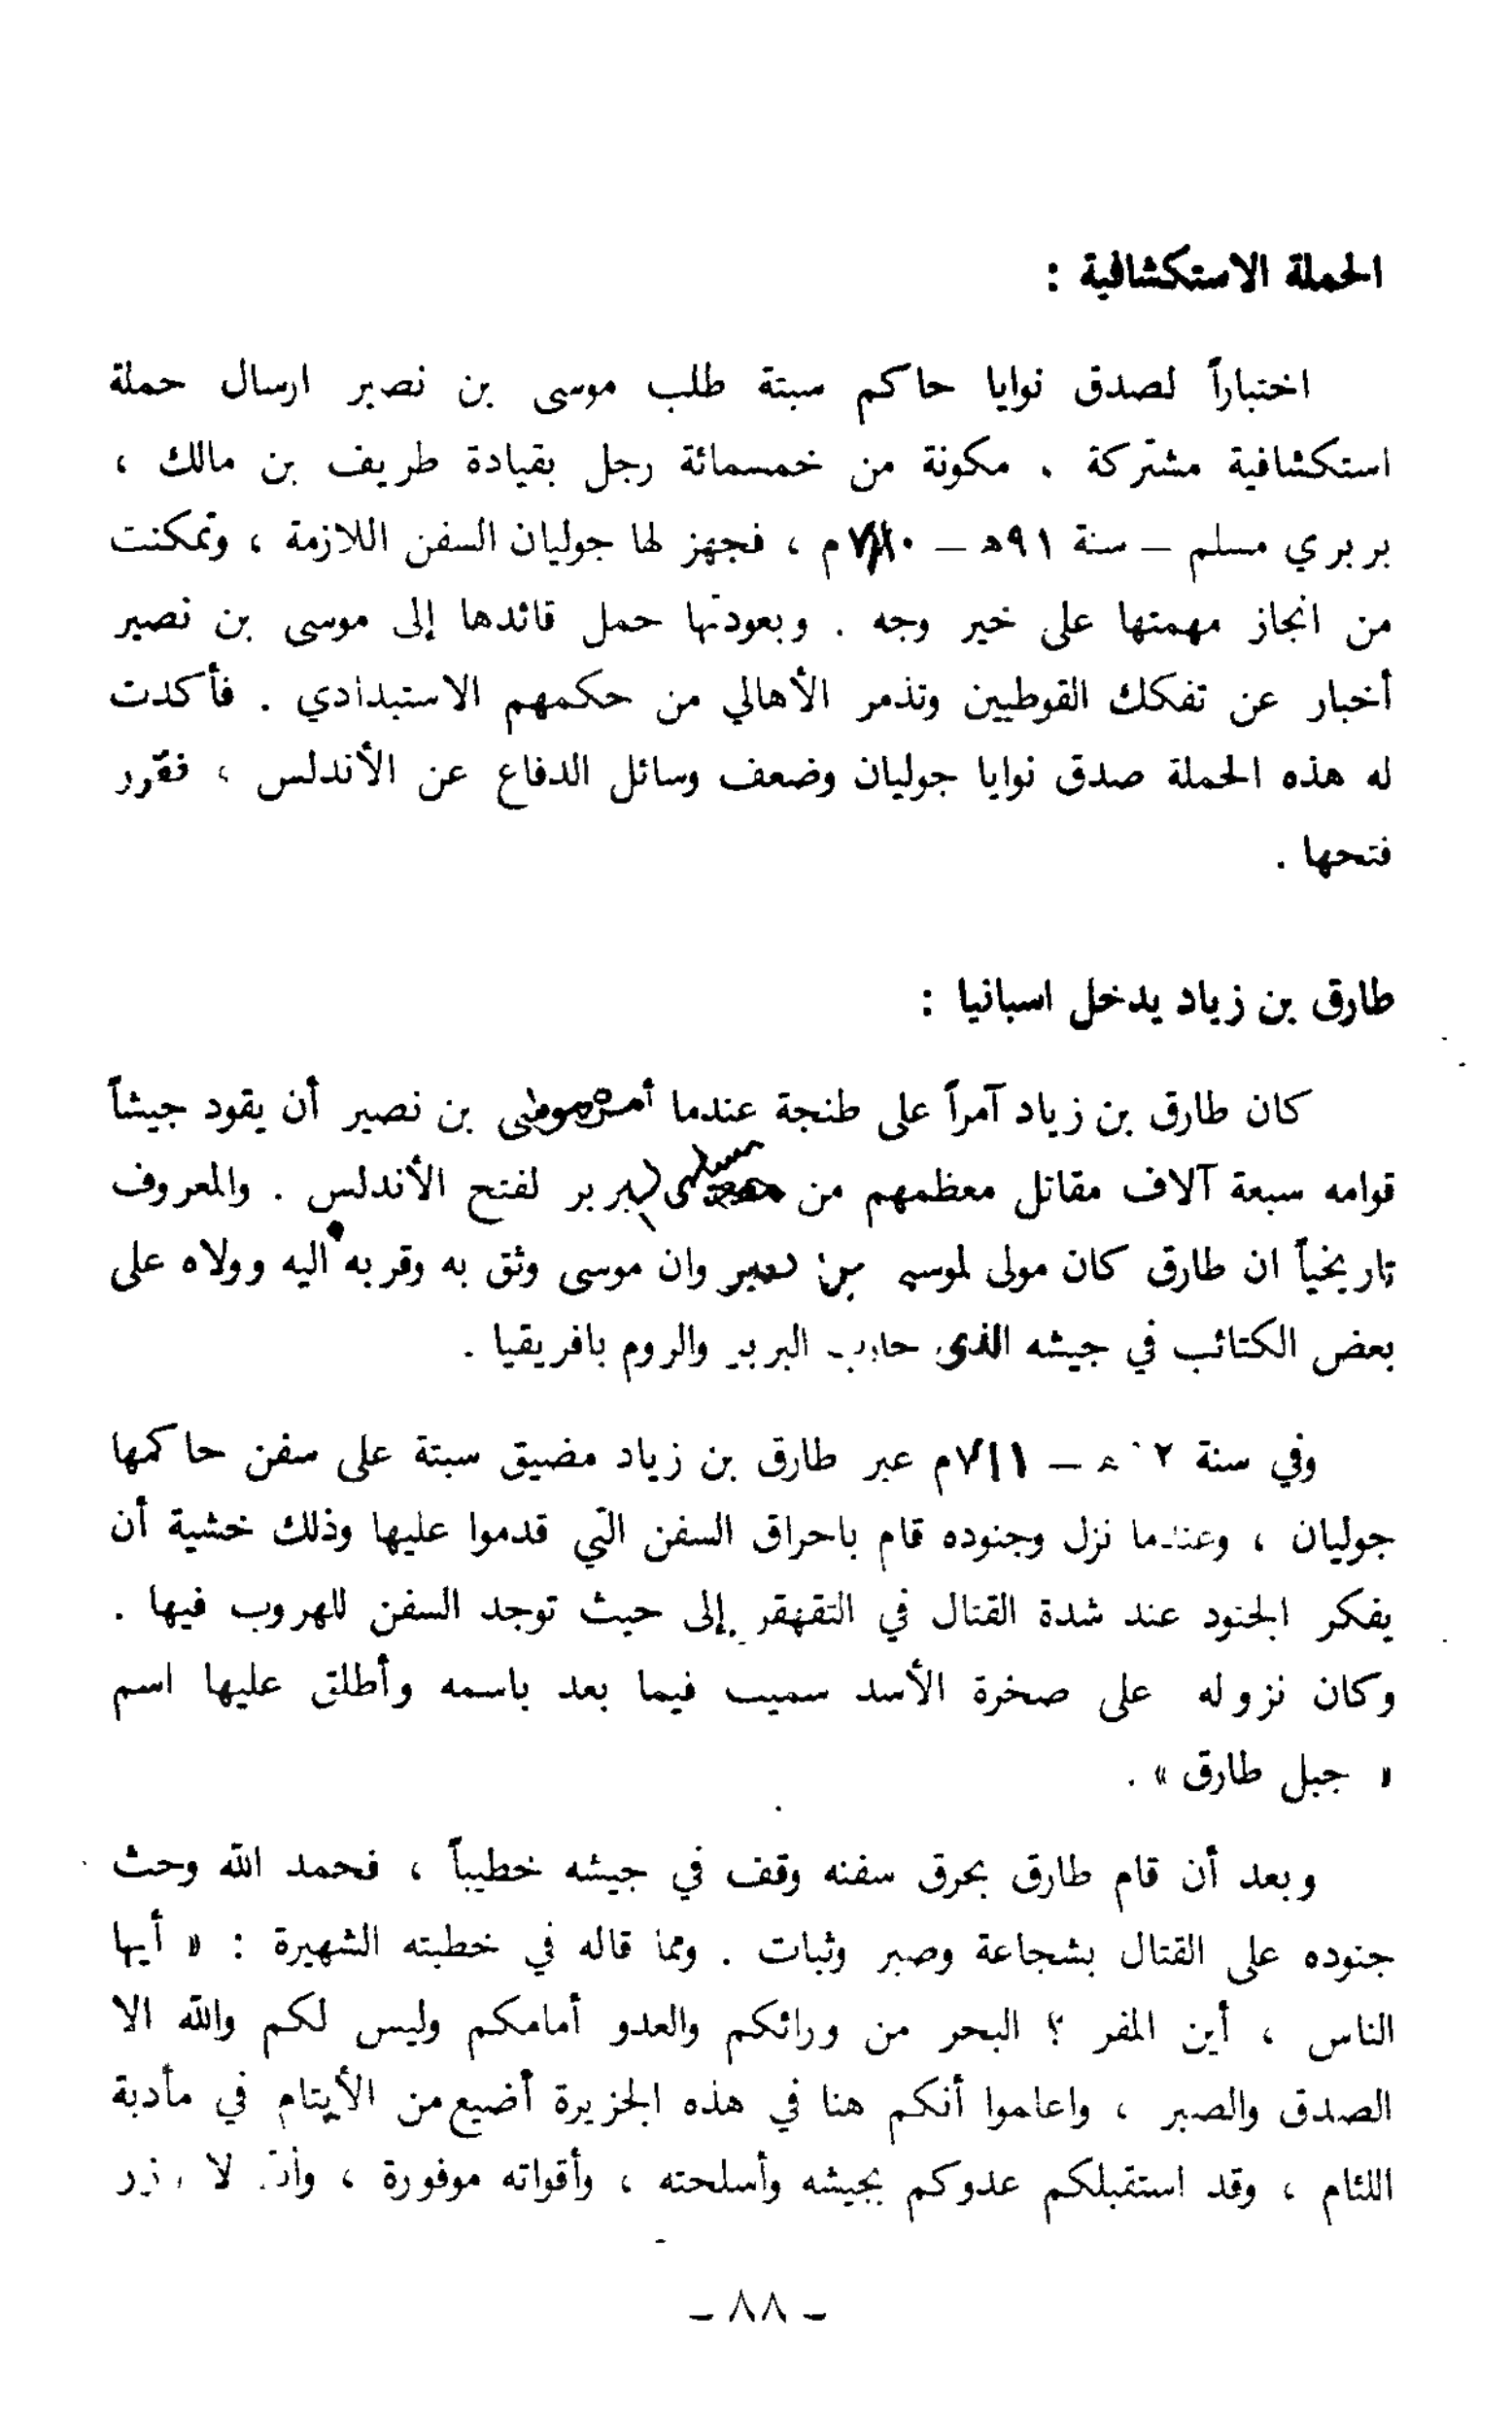 الحملة الاستكشافية :
اختباراً لصدق نوايا حاكم سبتة طلب موسى بن نصير ارسال حملة
استكشافية مشتركة . مكونة من خمسمائة رجل بقيادة طريف بن مالك ،
بربري مسلم – سنة ٩١هـ – ٧١٠م ، فجهز لها جوليان السفن اللازمة ، وتمكنت
من انجاز مهمتها على خير وجه . وبعودتها حمل قائدها إلى موسى بن نصير
أخبار عن تفكك القوطيين وتذمر الأهالي من حكمهم الاستبدادي . فأكدت
له هذه الحملة صدق نوايا جوليان وضعف وسائل الدفاع عن الأندلس ، فقرر
فتحها .
طارق بن زياد يدخل اسبانيا :
كان طارق بن زياد آمراً على طنجة عندما أمره موسى بن نصير أن يقود جيشاً
قوامه سبعة آلاف مقاتل معظمهم من البربر لفتح الأندلس . والمعروف
تاريخياً ان طارق كان مولى لموسى بن نصير وان موسى وثق به وقربه اليه وولاه على
بعض الكتائب في جيشه الذي حارب البربر والروم بافريقيا .
وفي سنة هـ – ٧١١م عبر طارق بن زياد مضيق سبتة على سفن حاكمها
جوليان ، وعندما نزل وجنوده قام باحراق السفن التي قدموا عليها وذلك خشية أن
يفكر الجنود عند شدة القتال في التقهقر إلى حيث توجد السفن للهروب فيها .
وكان نزوله على صخرة الأسد سميت فيما بعد باسمه وأطلق عليها اسم
« جبل طارق » .
وبعد أن قام طارق بحرق سفنه وقف في جيشه خطيباً ، فحمد الله وحث
جنوده على القتال بشجاعة وصبر وثبات . ومما قاله في خطبته الشهيرة : « أيها
الناس ، أين المفر ؟ البحر من ورائكم والعدو أمامكم وليس لكم والله الا
الصدق والصبر ، واعلموا أنكم هنا في هذه الجزيرة أضيع من الأيتام في مأدبة
اللئام ، وقد استقبلكم عدوكم بجيشه وأسلحته ، وأقواته موفورة ، لا
– ٨٨ –